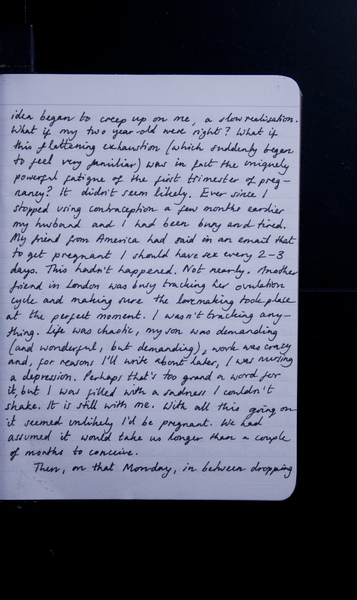 idea began to creep up on me, a slow realisation.
What if my two year-old were right? What if
this flattening exhaustion (which suddenly began
to feel very familiar) was in fact the uniquely
powerful fatigue of the first trimester of preg-
nancy? It didn't seem likely. Ever since I
stopped using contraception a few months earlier
my husband and I had been busy and tired.
My friend from America had said in an email that
to get pregnant I should have sex every 2-3
days. This hadn't happened. Not nearly. Another
friend in London was busy tracking her ovulation
cycle and making sure the lovemaking took place
at the perfect moment. I wasn't tracking any-
thing. Life was chaotic, my son was demanding
(and wonderful, but demanding), work was crazy
and, for reasons I'll write about later, I was nursing
a depression. Perhaps that's too grand a word for
it, but I was filled with a sadness I couldn't
shake. It is still with me. With all this going on
it seemed unlikely I'd be pregnant. We had
assumed it would take us longer than a couple
of months to conceive.
Then, on that Monday, in between dropping